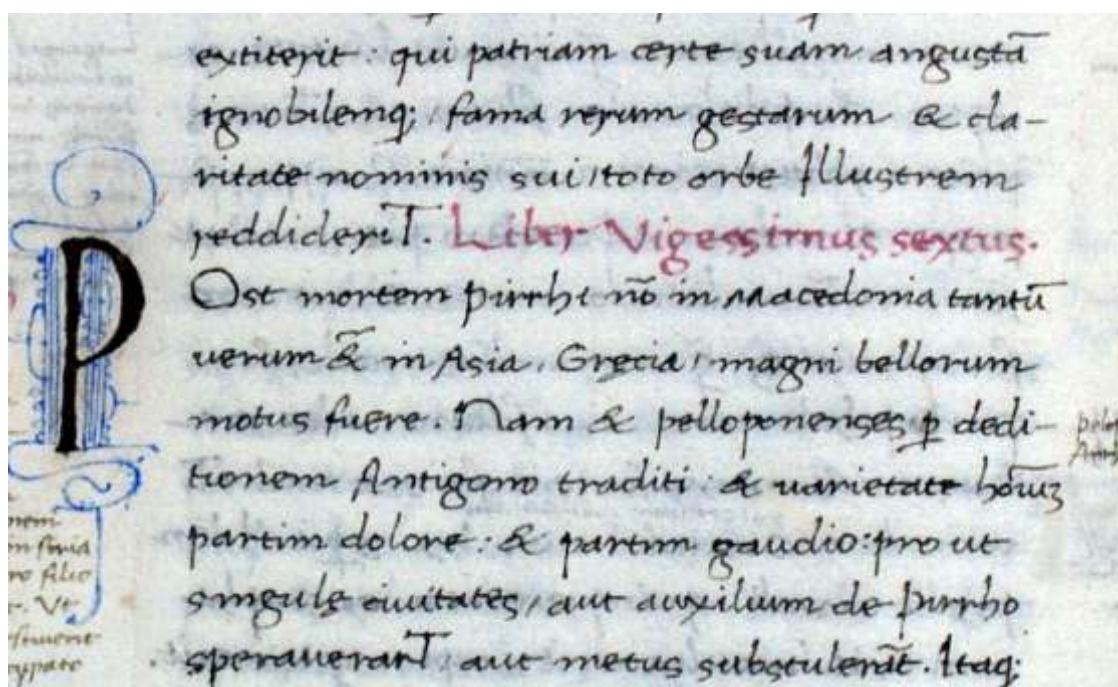 extiterit : qui patriam certe suam angustā
ignobilemq; / fama rerum gestarum & cla-
ritate nominis sui / toto orbe Illustrem
reddideriT. Liber Vigessimus sextus.
P
Ost mortem pirrhi nō in Macedonia tantū
uerum & in Asia, Grecia / magni bellorum
motus fuere. Nam & pelloponenses ꝑ dedi-
tionem Antigono traditi : & uarietate
partim dolore : & partim gaudio : pro ut
singulę ciuitates, / aut auxilium de pirrho
sperauerāT, aut metus substulerāt. Itaq;
nem
ro filio
Vt